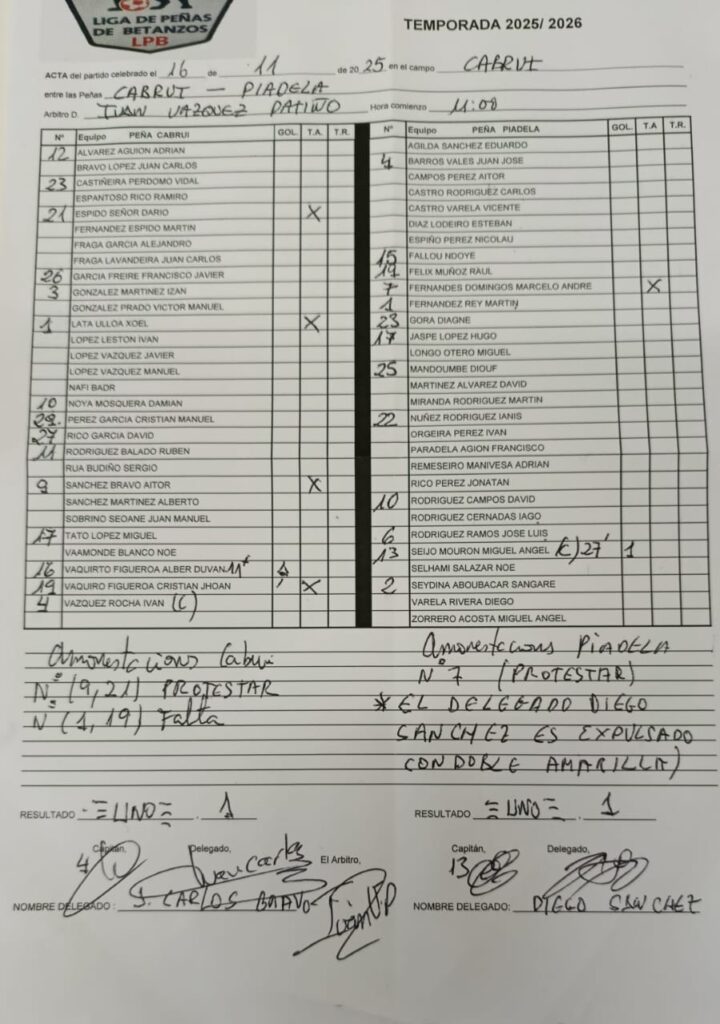 LIGA DE PEÑAS
DE BETANZOS
LPB
TEMPORADA 2025/ 2026
ACTA del partido celebrado el 16 de 11 de 2025 en el campo CABRUI
entre las Peñas CABRUI - PIADELA
Arbitro D. IUAN VAZQUEZ PATIÑO Hora comienzo 11:00
Nº Equipo PEÑA CABRUI GOL. T.A. T.R.
12 ALVAREZ AGUION ADRIAN
BRAVO LOPEZ JUAN CARLOS
23 CASTIÑEIRA PERDOMO VIDAL
ESPANTOSO RICO RAMIRO
21 ESPIDO SEÑOR DARIO X
FERNANDEZ ESPIDO MARTIN
FRAGA GARCIA ALEJANDRO
FRAGA LAVANDEIRA JUAN CARLOS
26 GARCIA FREIRE FRANCISCO JAVIER
3 GONZALEZ MARTINEZ IZAN
GONZALEZ PRADO VICTOR MANUEL
1 LATA ULLOA XOEL X
LOPEZ LESTON IVAN
LOPEZ VAZQUEZ JAVIER
LOPEZ VAZQUEZ MANUEL
NAFI BADR
10 NOYA MOSQUERA DAMIAN
29. PEREZ GARCIA CRISTIAN MANUEL
27 RICO GARCIA DAVID
11 RODRIGUEZ BALADO RUBEN
RUA BUDIÑO SERGIO
9 SANCHEZ BRAVO AITOR X
SANCHEZ MARTINEZ ALBERTO
SOBRINO SEOANE JUAN MANUEL
17 TATO LOPEZ MIGUEL
VAAMONDE BLANCO NOE
16 VAQUIRTO FIGUEROA ALBER DUVAN 11' 1
19 VAQUIRO FIGUEROA CRISTIAN JHOAN X
4 VAZQUEZ ROCHA IVAN (C)
Nº Equipo PEÑA PIADELA GOL. T.A T.R.
AGILDA SANCHEZ EDUARDO
4 BARROS VALES JUAN JOSE
CAMPOS PEREZ AITOR
CASTRO RODRIGUEZ CARLOS
CASTRO VARELA VICENTE
DIAZ LODEIRO ESTEBAN
ESPIÑO PEREZ NICOLAU
15 FALLOU NDOYE
19 FELIX MUÑOZ RAUL
7 FERNANDES DOMINGOS MARCELO ANDRE X
1 FERNANDEZ REY MARTIN
23 GORA DIAGNE
17 JASPE LOPEZ HUGO
LONGO OTERO MIGUEL
25 MANDOUMBE DIOUF
MARTINEZ ALVAREZ DAVID
MIRANDA RODRIGUEZ MARTIN
22 NUÑEZ RODRIGUEZ IANIS
ORGEIRA PEREZ IVAN
PARADELA AGION FRANCISCO
REMESEIRO MANIVESA ADRIAN
RICO PEREZ JONATAN
10 RODRIGUEZ CAMPOS DAVID
RODRIGUEZ CERNADAS IAGO
6 RODRIGUEZ RAMOS JOSE LUIS
13 SEIJO MOURON MIGUEL ANGEL (C) 27' 1
SELHAMI SALAZAR NOE
2 SEYDINA ABOUBACAR SANGARE
VARELA RIVERA DIEGO
ZORRERO ACOSTA MIGUEL ANGEL
Amonestacions Cabrui
Nº (9, 21) PROTESTAR
N (1, 19) Falta
Amonestacions PIADELA
Nº 7 (PROTESTAR)
* EL DELEGADO DIEGO
SANCHEZ ES EXPULSADO
CON DOBLE AMARILLA)
RESULTADO -=UNO= . 1
Capitán, Delegado, El Arbitro,
4 Juan Carlos
NOMBRE DELEGADO : J. CARLOS BRAVO
Iván V.P
RESULTADO =UNO= 1
Capitán, Delegado,
13
NOMBRE DELEGADO: DIEGO SANCHEZ